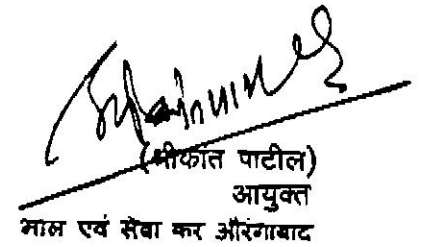 (श्रीकांत पाटील)
आयुक्त
माल एवं सेवा कर औरंगाबाद